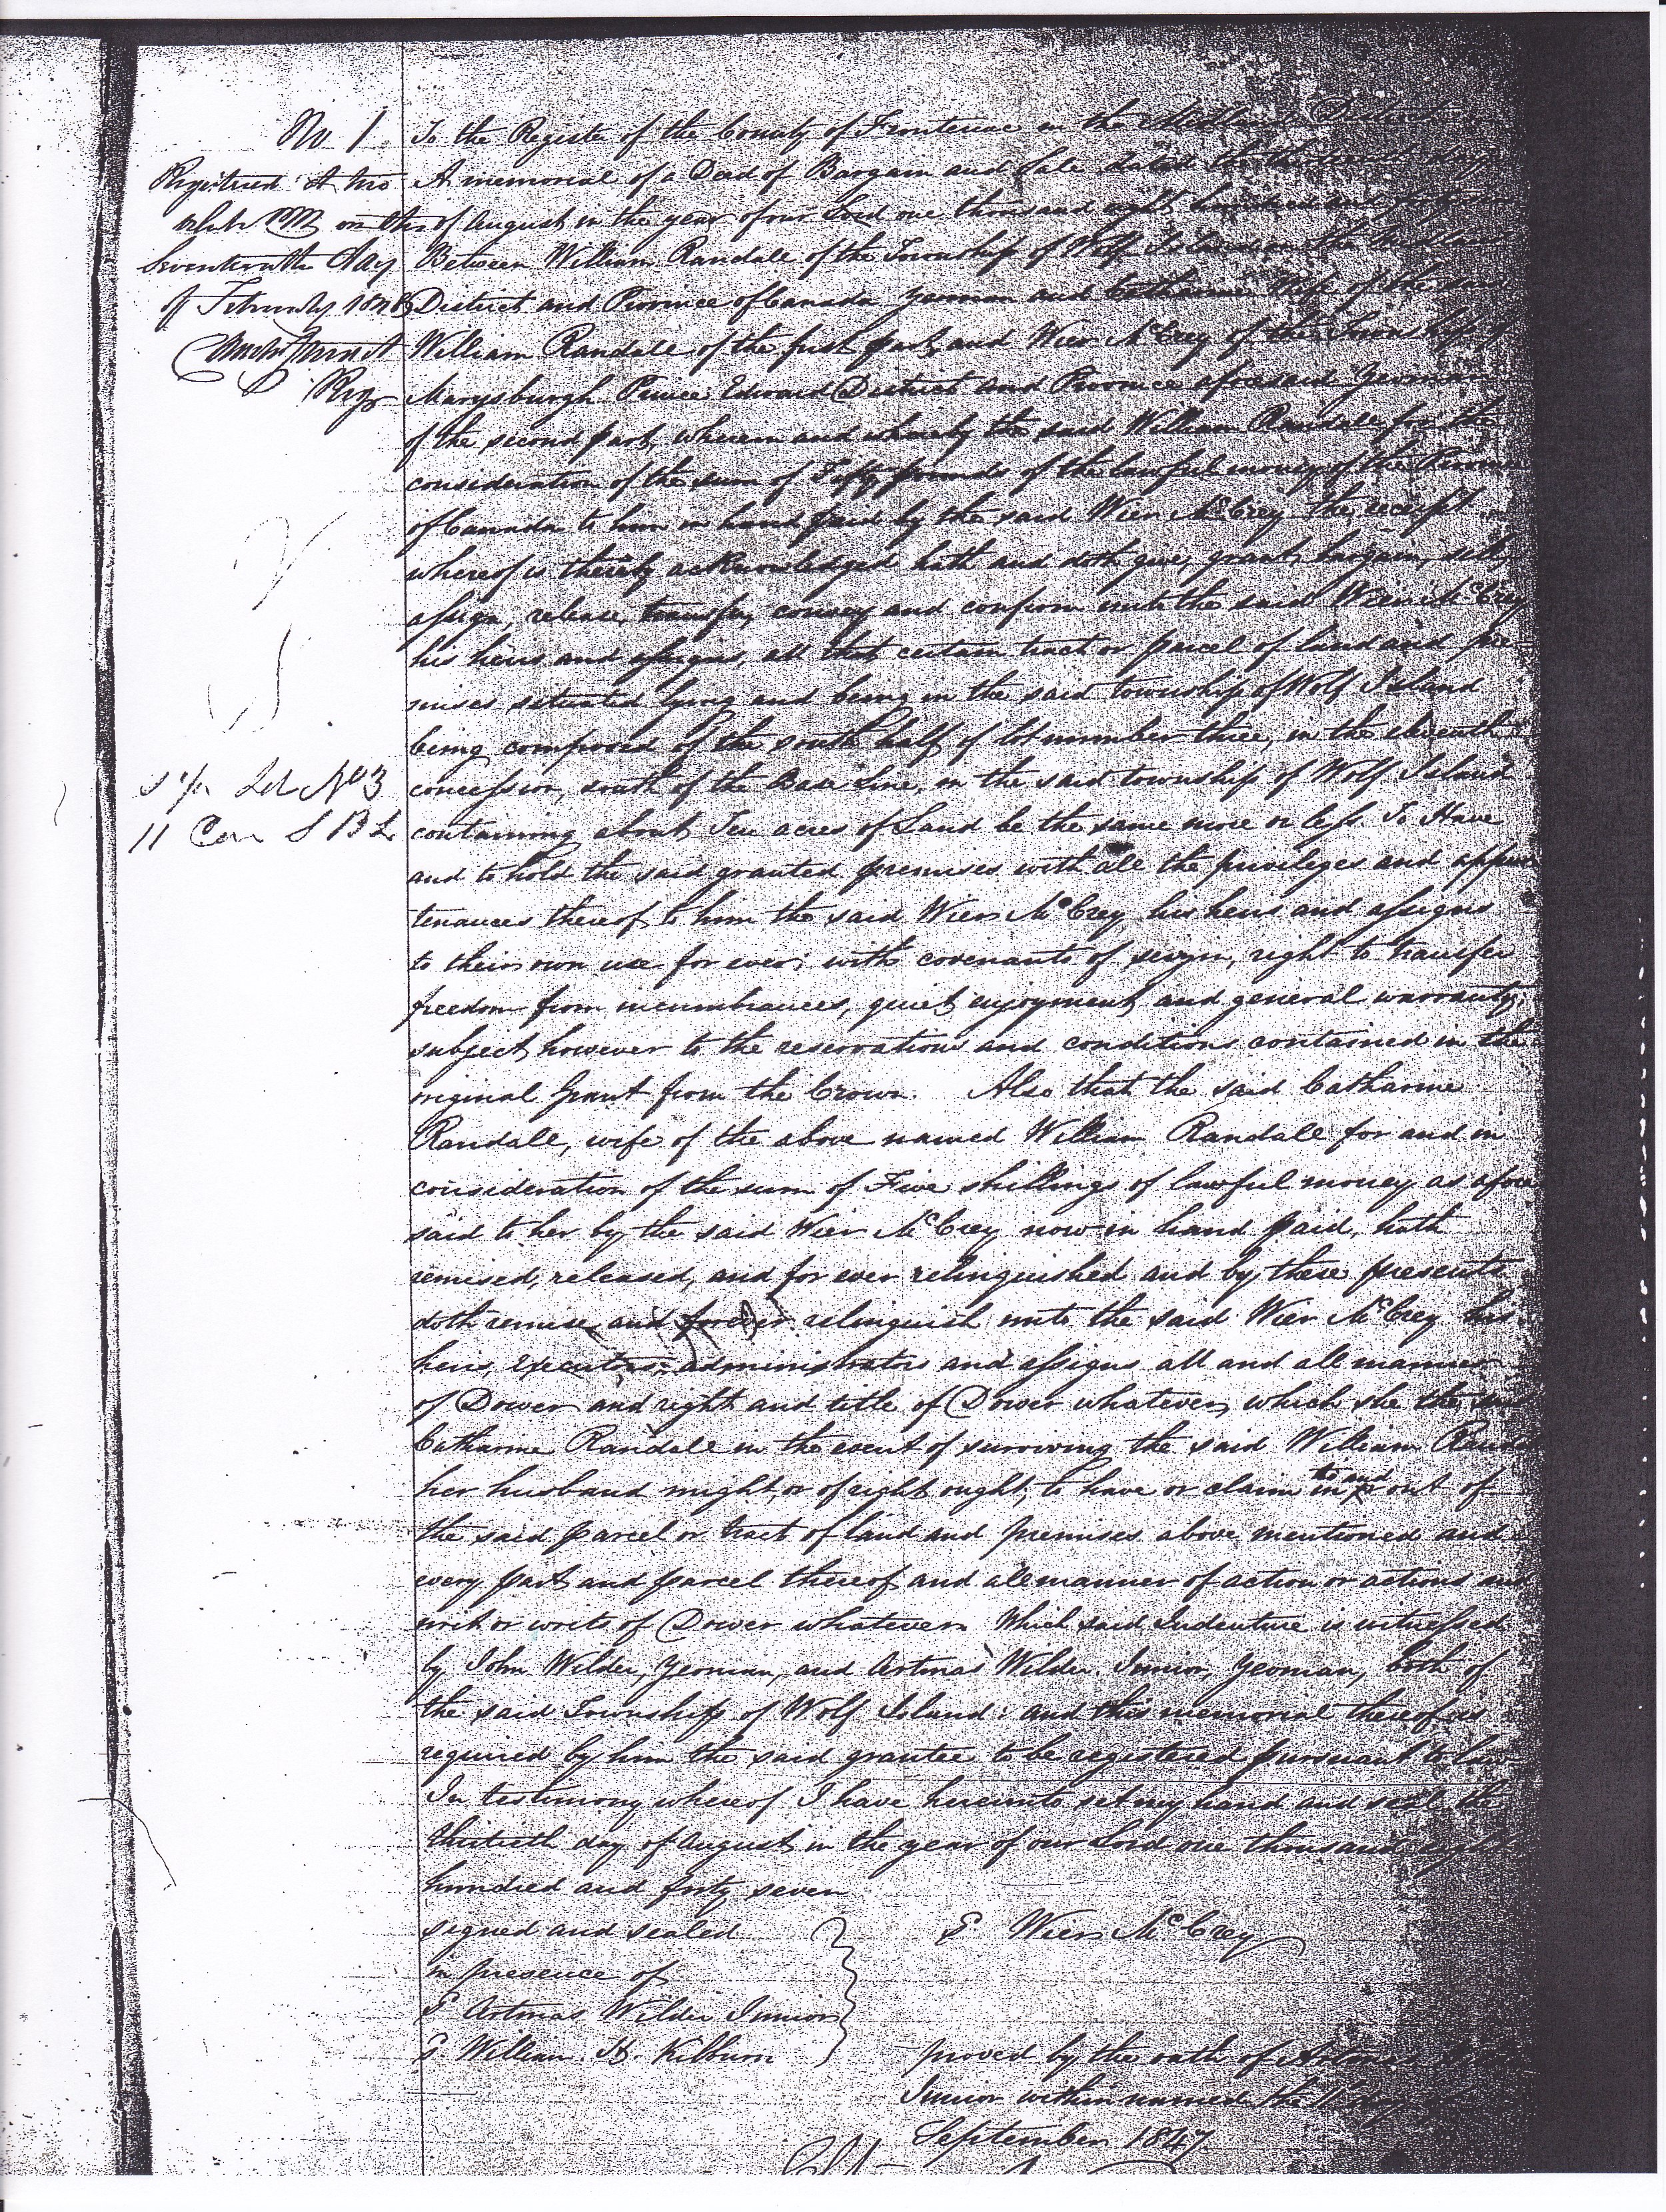 No 1
Registered at two
oclock PM on the
Seventeenth day
of February 1848
Reg
To the Register of the County of Frontenac in the Midland District
A memorial of a Deed of Bargain and Sale dated the thirteenth day
of August in the year of our Lord one thousand eight hundred and forty
Between William Randale of the Township of Wolf Island in the Midland
District and Province of Canada Yeoman and Catharine Wife of the said
William Randale of the first part, and Wier McCrey of the Township of
Marysburgh Prince Edward District and Province aforesaid Yeoman
of the second part, wherein and whereby the said William Randale for the
consideration of the sum of Fifty pounds of the lawful money of the Province
of Canada to him in hand paid by the said Wier McCrey the receipt
whereof is thereby acknowledged hath and doth give, grant, bargain, sell,
assign, release, transfer, convey and confirm unto the said Wier McCrey
his heirs and assigns, all that certain tract or parcel of land and pre-
mises situated lying and being in the said township of Wolf Island
being composed of the south half of lot number three, in the eleventh
concession, south of the Base Line, in the said township of Wolf Island
S 1/2 Lot No 3
11 Con S B L
containing about Ten acres of Land be the same more or less. To Have
and to hold the said granted premises with all the privileges and appur
tenances thereof to him the said Wier McCrey his heirs and assigns
to their own use for ever; with covenants of seizin, right to transfer
freedom from incumbrances, quiet enjoyment, and general warranty;
subject however to the reservations and conditions contained in the
original Grant from the Crown. Also that the said Catharine
Randale, wife of the above named William Randale for and in
consideration of the sum of Five shillings of lawful money as afore
said to her by the said Wier McCrey now in hand paid, hath
remised, released, and for ever relinquished and by these presents
doth remise, and forever relinquish unto the said Wier McCrey his
heirs, Executors, administrators and assigns all and all manner
of Dower and right and title of Dower whatever, which she the said
Catharine Randale in the event of surviving the said William Randale
her husband might, or of right ought, to have or claim in to and out of
the said parcel or tract of land and premises above mentioned and
every part and parcel thereof and all manner of action or actions and
writ or writs of Dower whatever. Which said Indenture is witnessed
by John Wilder, Yeoman, and Artmas Wilder Junior, Yeoman, both of
the said Township of Wolf Island: and this memorial thereof is
required by him the said grantee to be registered pursuant to law
In testimony whereof I have hereunto set my hand and seal the
thirtieth day of August in the year of our Lord one thousand eight
hundred and forty seven
signed and sealed
in presence of
S Artmas Wilder Junior
S William H. Kilburn
S Wier McCrey
proved by the oath of Artmas Wilder
Junior within named the 11 day of
September 1847